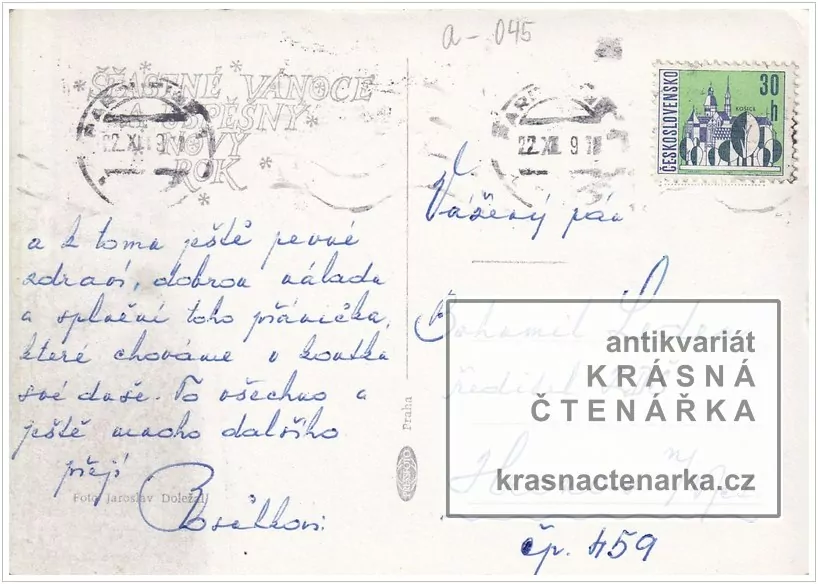 a - 045
ŠŤASTNÉ VÁNOCE
A ÚSPĚŠNÝ
NOVÝ
ROK
22.XII
22.XII
ČESKOSLOVENSKO
30
h
KOŠICE
a k tomu ještě pevné
zdraví, dobrou náladu
a splnění toho přáníčka,
které chováme v koutku
své duše. To všechno a
ještě mnoho dalšího
přejí
Foto: Jaroslav Doležal
Praha
PRESSFOTO
Vážený pán
Bohumil
ředitel
čp. 459
antikvariát
KRÁSNÁ
ČTENÁŘKA
krasnactenarka.cz